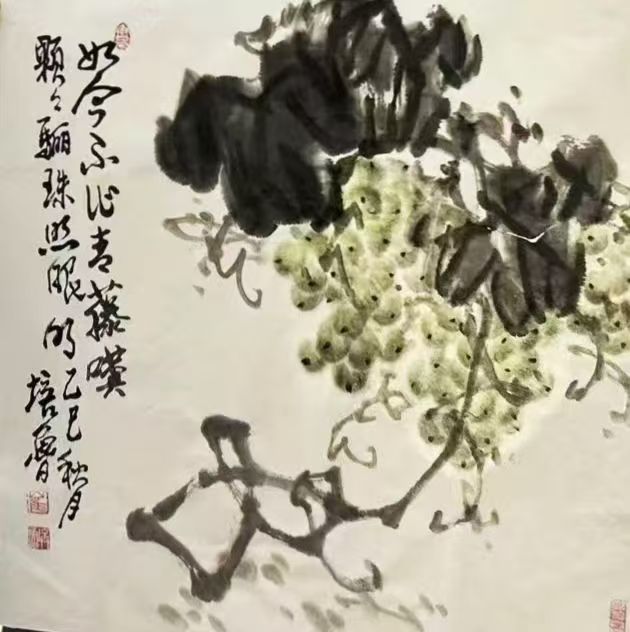 如今不作青藤嘆
顆々驪珠照眼明
乙巳秋月
培